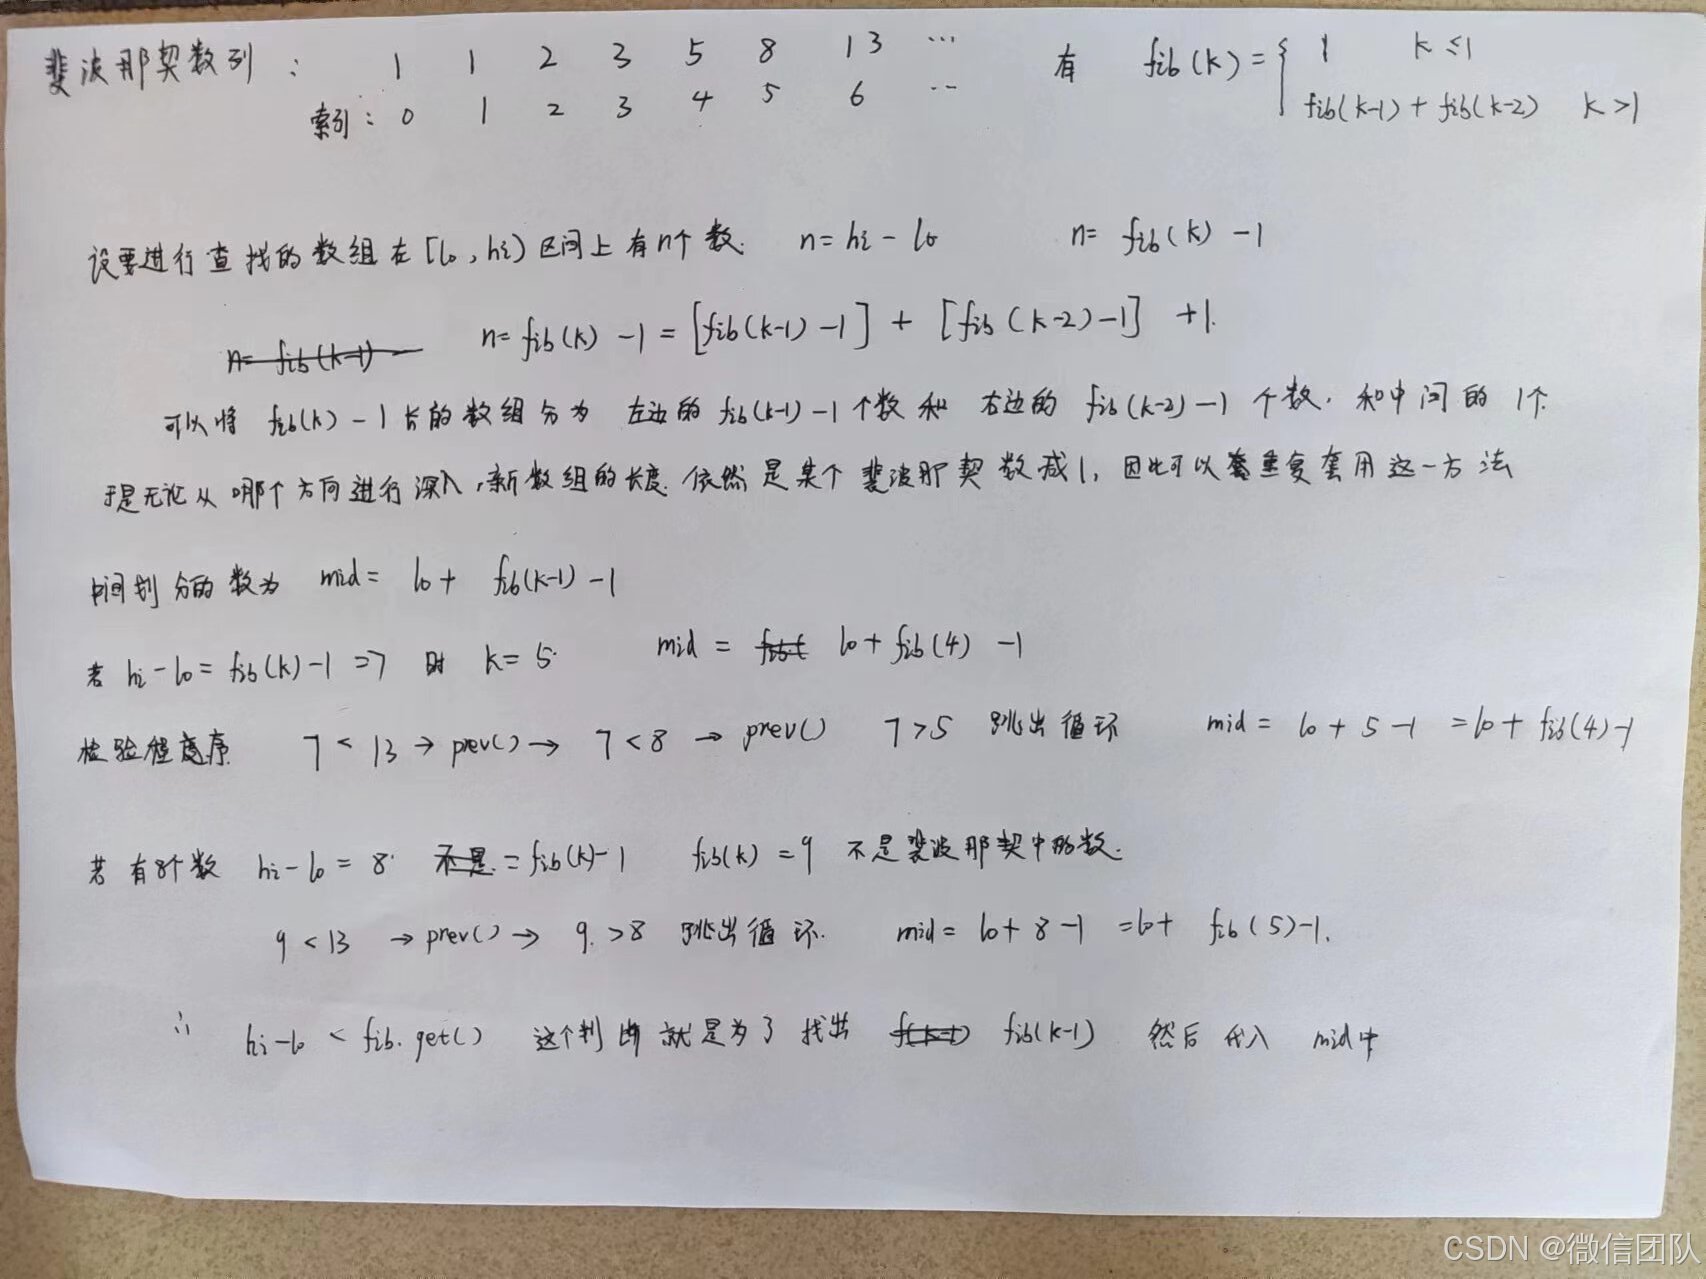 斐波那契数列: 1 1 2 3 5 8 13 … 有 fib(k) = { 1 k≤1
索引: 0 1 2 3 4 5 6 … fib(k-1) + fib(k-2) k>1
设要进行查找的数组在[lo, hi)区间上有n个数. n = hi - lo n = fib(k) -1
n= fib(k-1) - n= fib(k) -1 = [fib(k-1) -1] + [fib(k-2)-1] +1.
可以将 fib(k) -1 长的数组分为 左边的 fib(k-1) -1 个数 和 右边的 fib(k-2) -1 个数, 和中间的 1个.
于是无论从哪个方向进行深入,新数组的长度 依然是某个斐波那契数减1, 因此可以套重复套用这一方法
中间划分的数为 mid = lo + fib(k-1) -1
若 hi - lo = fib(k) -1 =7 时 k= 5. mid = fib( lo + fib(4) -1
检验程序 7 < 13 → prev() → 7 < 8 → prev() 7 > 5 跳出循环 mid = lo + 5 -1 = lo + fib(4)-1
若有8个数 hi - lo = 8. 不是. = fib(k)-1 fib(k) = 9 不是斐波那契中的数.
9 < 13 → prev() → 9. > 8 跳出循环. mid = lo + 8 -1 = lo + fib(5)-1.
∴ hi - lo < fib.get() 这个判断就是为了找出 f(k-1) fib(k-1) 然后代入 mid中
CSDN @微信团队